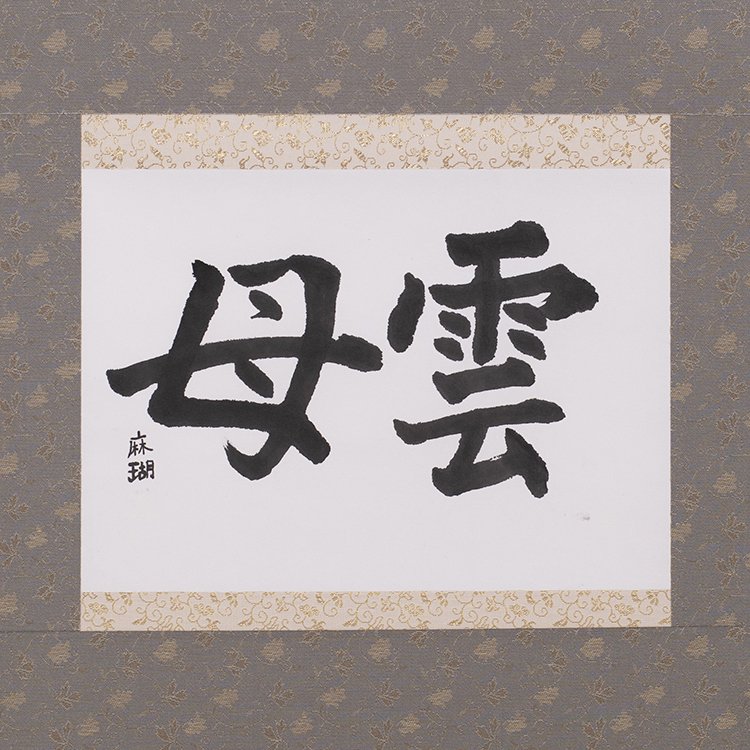 雲母
麻瑚